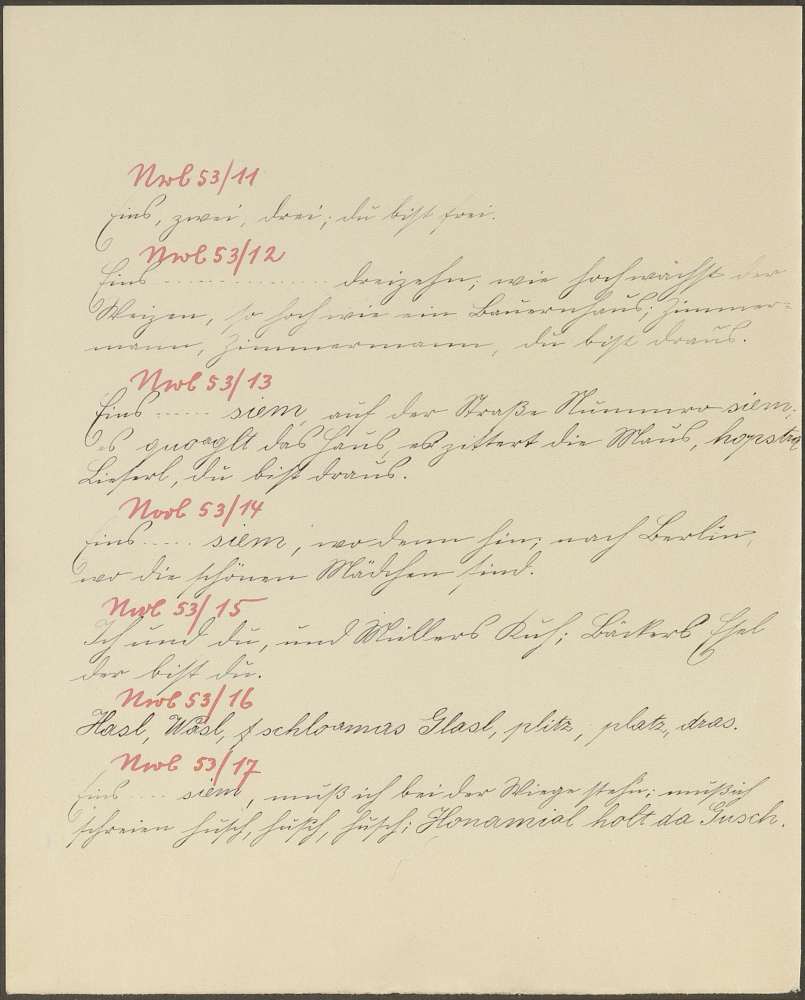 Nrb 53/11
Eins, zwei, drei; du bist frei.
Nrb 53/12
Eins .................. dreizehn, wie hoch wächst der
Weizen, so hoch wie ein Bauernhaus; Zimmer=
mann, Zimmermann, du bist draus.
Nrb 53/13
Eins ...... siem, auf der Straße Nummro siem;
es das Haus, es zittert die Maus,
Lieserl, du bist draus.
Nrb 53/14
Eins ..... siem, wo denn hin; nach Berlin,
wo die schönen Mädchen sind.
Nrb 53/15
Ich und du, und Müllers Kuh; Bäckers Esel
der bist du.
Nrb 53/16
Hasl, Wasl, schloamas Glasl, plitz, platz, dras.
Nrb 53/17
Eins .... siem, muß ich bei der Wiege stehn; muß ich
schreien husch, husch, husch; holt da Gusch.